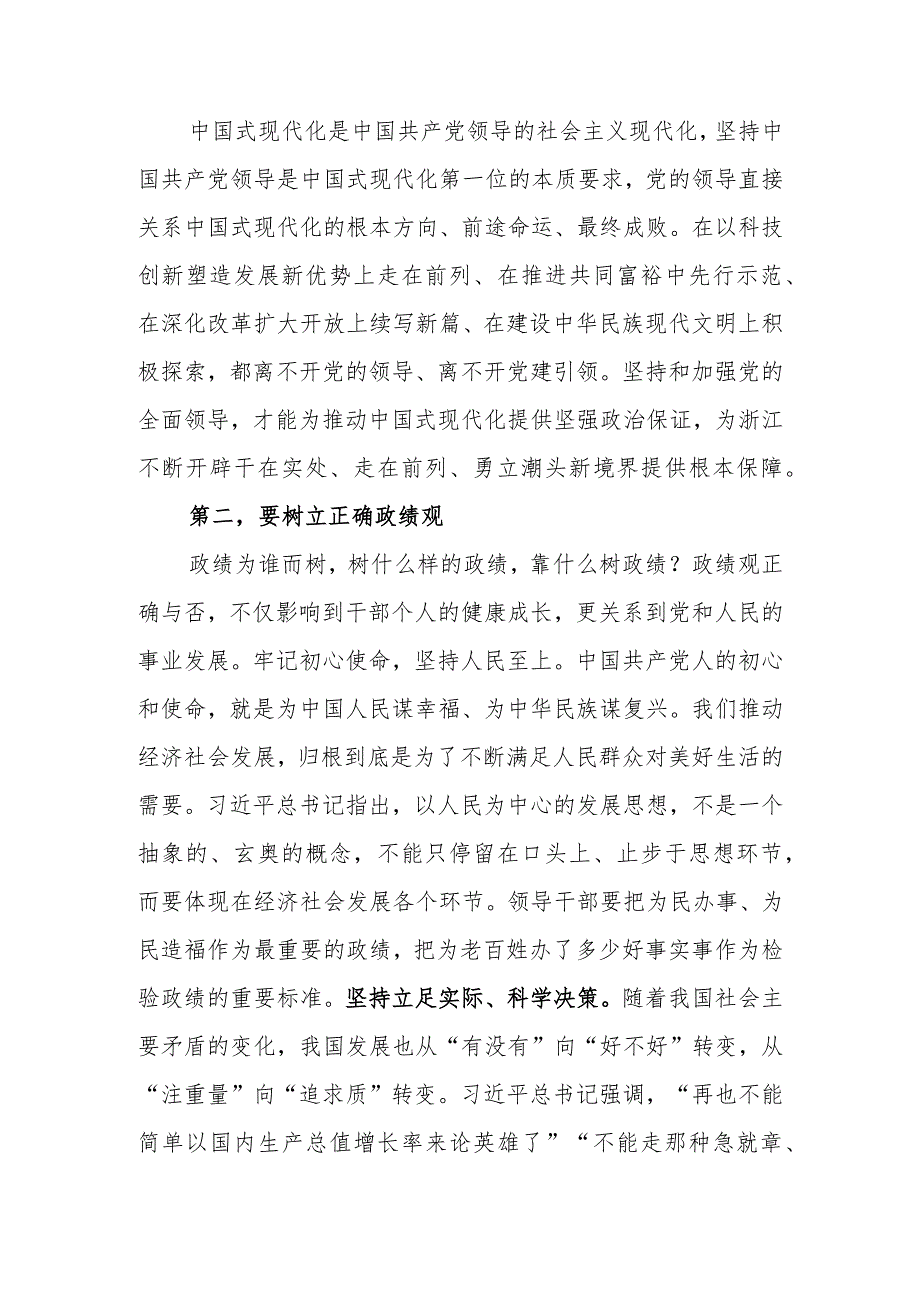 中国式现代化是中国共产党领导的社会主义现代化，坚持中
国共产党领导是中国式现代化第一位的本质要求，党的领导直接
关系中国式现代化的根本方向、前途命运、最终成败。在以科技
创新塑造发展新优势上走在前列、在推进共同富裕中先行示范、
在深化改革扩大开放上续写新篇、在建设中华民族现代文明上积
极探索，都离不开党的领导、离不开党建引领。坚持和加强党的
全面领导，才能为推动中国式现代化提供坚强政治保证，为浙江
不断开辟干在实处、走在前列、勇立潮头新境界提供根本保障。
第二，要树立正确政绩观
政绩为谁而树，树什么样的政绩，靠什么树政绩？政绩观正
确与否，不仅影响到干部个人的健康成长，更关系到党和人民的
事业发展。牢记初心使命，坚持人民至上。中国共产党人的初心
和使命，就是为中国人民谋幸福、为中华民族谋复兴。我们推动
经济社会发展，归根到底是为了不断满足人民群众对美好生活的
需要。习近平总书记指出，以人民为中心的发展思想，不是一个
抽象的、玄奥的概念，不能只停留在口头上、止步于思想环节，
而要体现在经济社会发展各个环节。领导干部要把为民办事、为
民造福作为最重要的政绩，把为老百姓办了多少好事实事作为检
验政绩的重要标准。坚持立足实际、科学决策。随着我国社会主
要矛盾的变化，我国发展也从“有没有”向“好不好”转变，从
“注重量”向“追求质”转变。习近平总书记强调，“再也不能
简单以国内生产总值增长率来论英雄了”“不能走那种急就章、